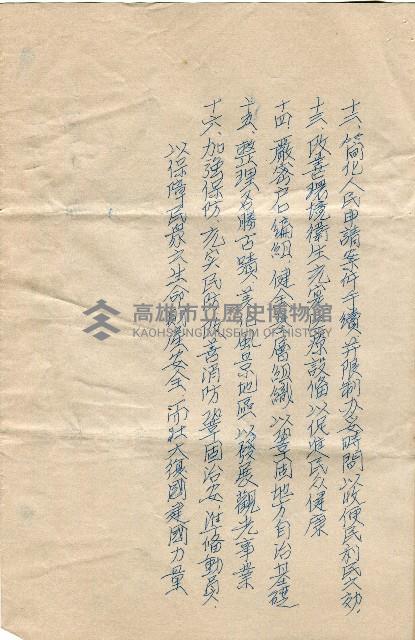 十二、簡化人民申請案件手續、并限制办妥時間以收便民利民之効、
十三、改善環境衛生充實醫療設備以促進民众健康
十四、嚴密户口編組、健全基層組織、以鞏固地方自治基礎
十五、整理名勝古蹟、美化風景地區以發展觀光事業
十六、加強保防、充实民防、改善消防鞏固治安、準備動員、
以保障民眾之生命財產安全、而壯大復國建國力量
高雄市立歷史博物館
KAOHSIUNG MUSEUM OF HISTORY